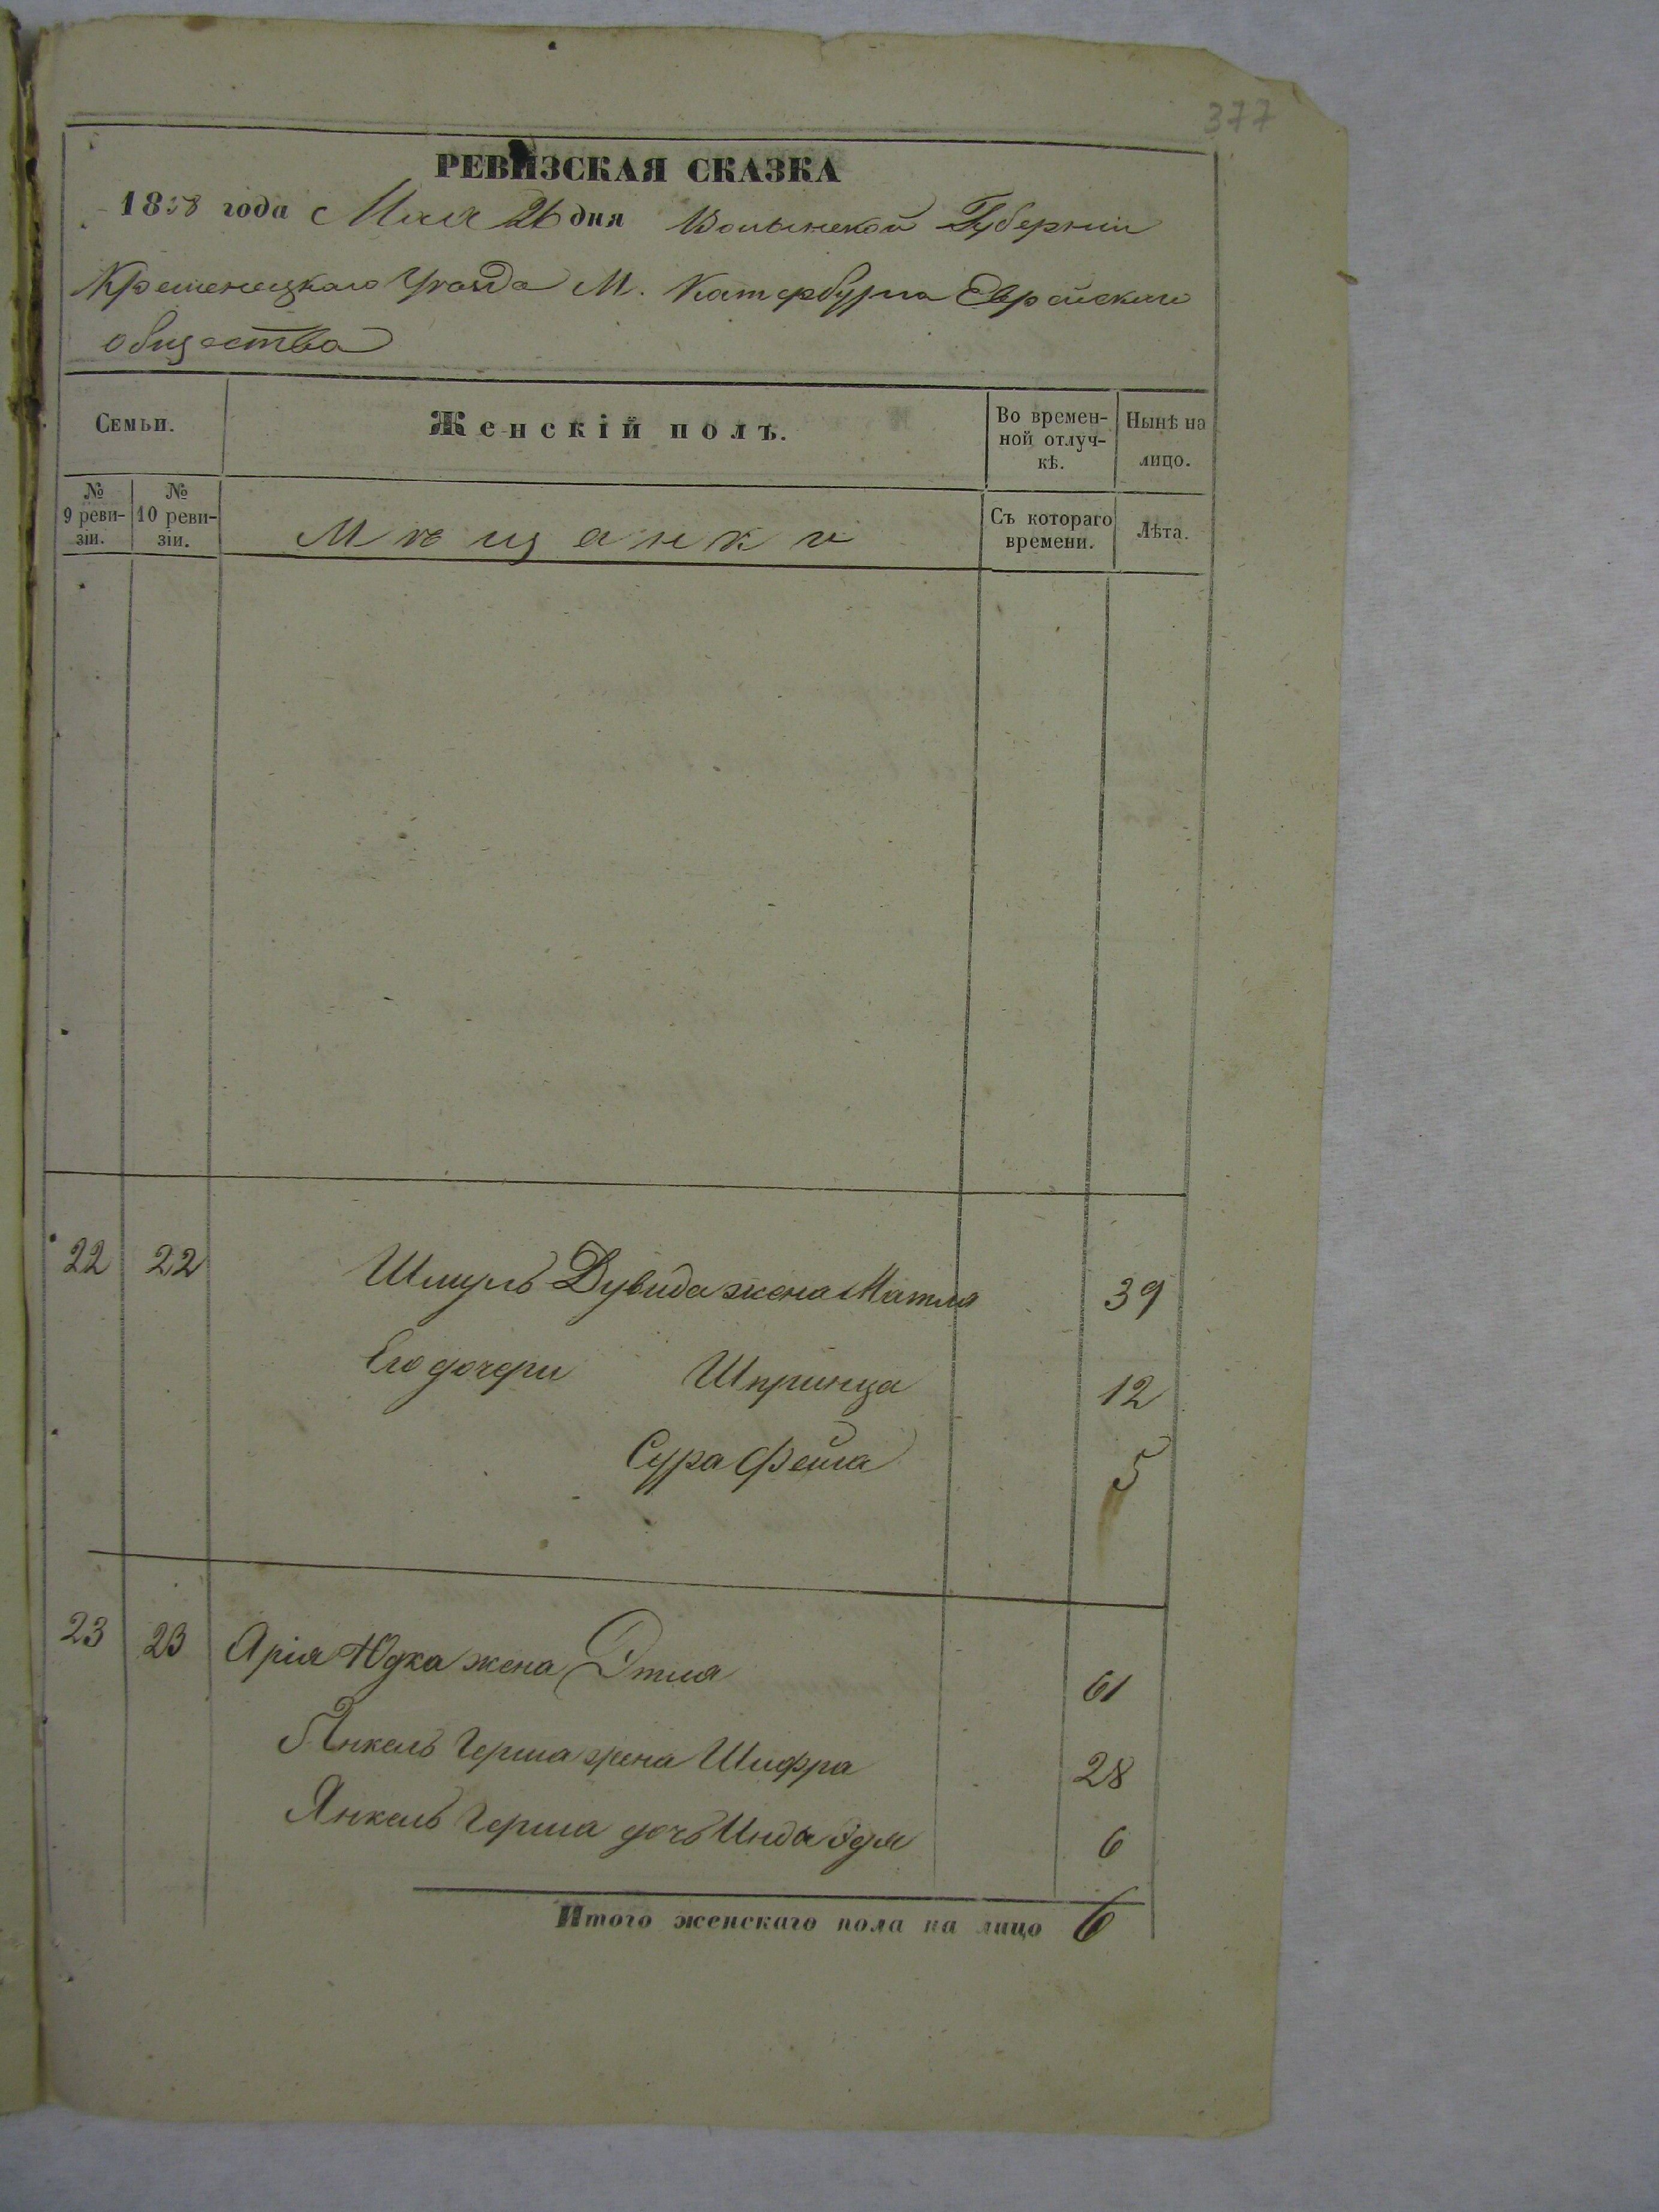 377
РЕВИЗСКАЯ СКАЗКА
1858 года Мая 26 дня Волынской Губернии
Кременецкаго Уѣзда М. Катербурга Еврейскаго
общества
Семьи. Женскій полъ. Во времен-ной отлуч-кѣ. Нынѣ на лицо.
№ 9 реви-зіи. № 10 реви-зіи. Мѣщанки Съ котораго времени. Лѣта.
22 22 Шмуль Дувида жена Матля 39
Его дочери Шпринца 12
Сура Фейга 5
23 23 Арія Юдка жена Этля 61
Янкель Герша жена Шифра 28
Янкель Герша дочь Инда 6
Итого женскаго пола на лицо 6